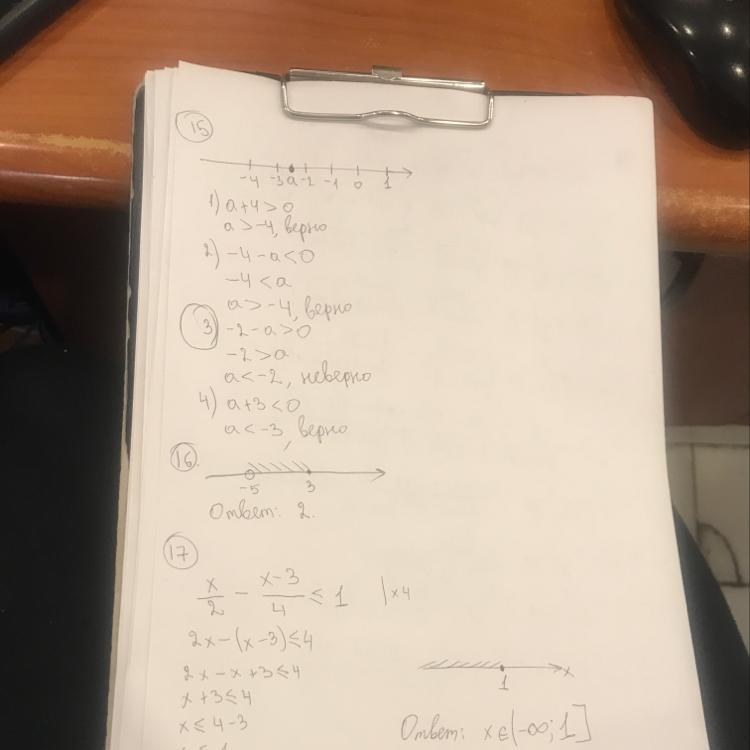 15
-4 -3 a -2 -1 0 1
1) a+4>0
a>-4, верно
2) -4-a<0
-4<a
a>-4, верно
3 -2-a>0
-2>a
a<-2, неверно
4) a+3<0
a<-3, верно
16.
-5 3
Ответ: 2.
17
x/2 - (x-3)/4 ≤ 1 |×4
2x-(x-3)≤4
2x-x+3≤4
x+3≤4
x≤4-3
1 x
Ответ: x∈(-∞; 1]